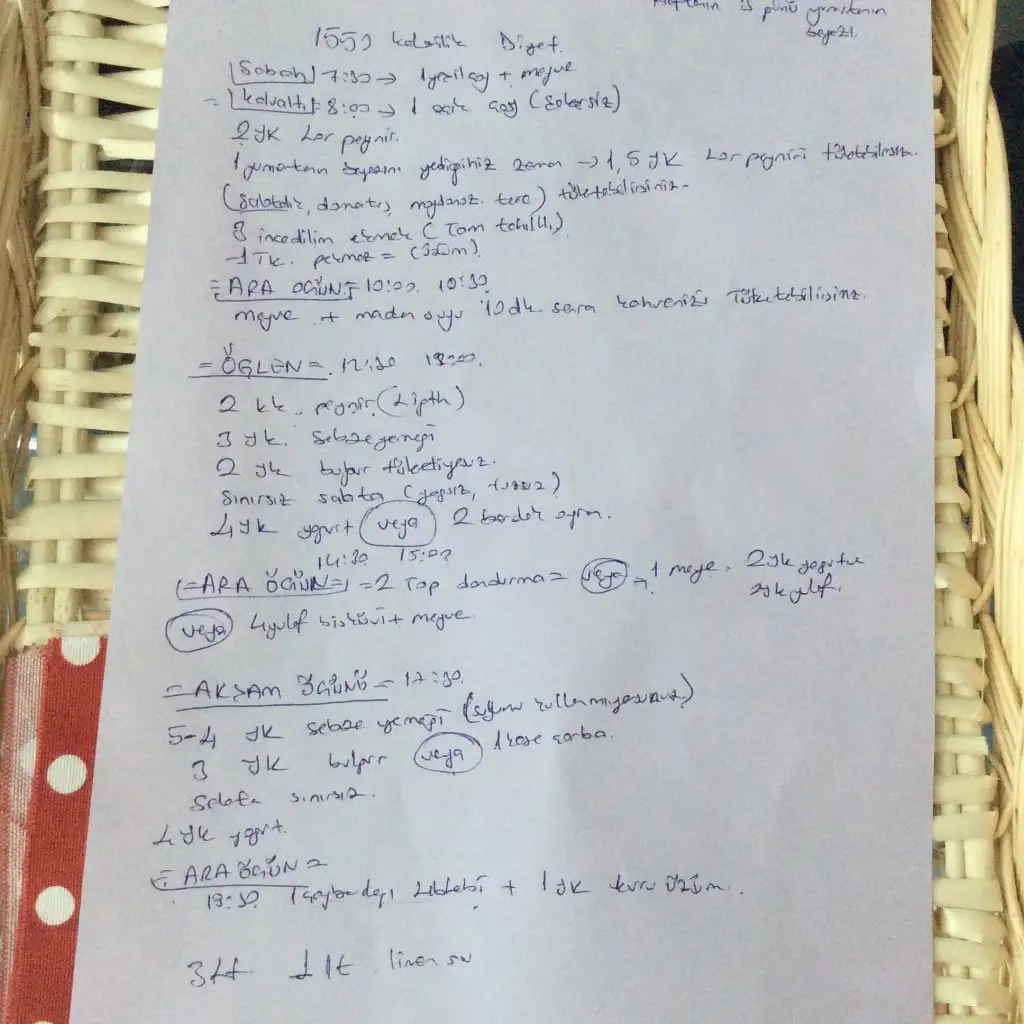 Haftanın 3 günü yumurtanın
beyazı
1550 kalorilik Diyet.
Sabah 7:30 → 1 yeşil çay + meyve
= kahvaltı = 8:00 → 1 açık çay (şekersiz)
2 YK Lor peynir.
1 yumurtanın beyazını yediğiniz zaman → 1,5 YK Lor peynirini tüketebilirsiniz.
(Salatalık, domates, maydanoz, tere) tüketebilirsiniz.
3 ince dilim ekmek (Tam tahıllı)
-1 TK. pekmez = (üzüm)
= ARA ÖĞÜN = 10:00 10:30
meyve + maden suyu 10 dk. sonra kahvenizi Tüketebilirsiniz.
= ÖĞLEN = 12:30 13:00.
2 kk. peynir (Light)
3 yk. Sebze yemeği
2 yk bulgur tüketiyoruz.
Sınırsız salata (yağsız, tuzsuz)
4 YK yoğurt veya 2 bardak ayran.
14:30 15:00
= ARA ÖĞÜN = = 2 Top dondurma = veya = 1 meyve. 2 yk yoğurt
yk yulaf.
veya 4 yulaf bisküvi + meyve
= AKŞAM ÖĞÜNÜ = 17:30.
5-4 YK sebze yemeği (suyunu kullanmıyorsunuz)
3 YK bulgur veya 1 kase çorba.
Salata sınırsız.
4 YK yoğurt.
= ARA ÖĞÜN =
19:30 1 çay bardağı Leblebi + 1 YK kuru üzüm..
3 Lt. 1 lt